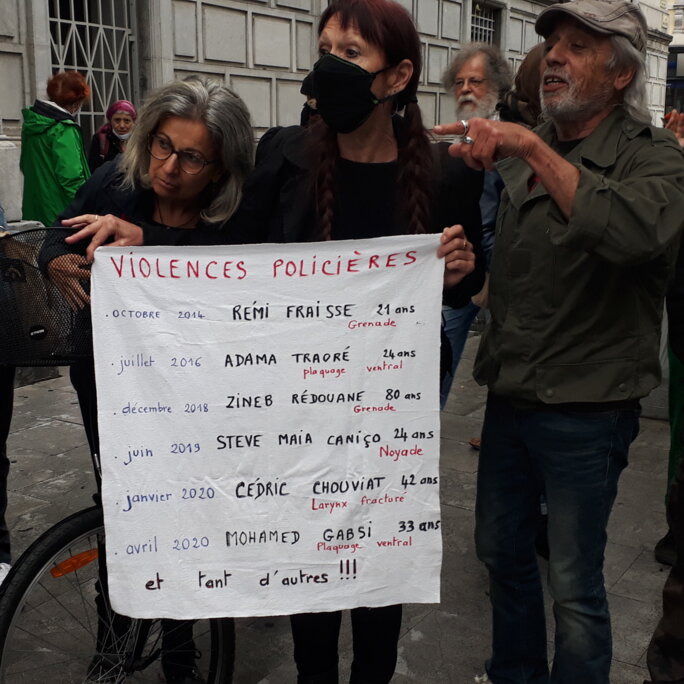 VIOLENCES POLICIÈRES
. OCTOBRE 2014 RÉMI FRAISSE 21 ans
Grenade
. juillet 2016 ADAMA TRAORÉ 24 ans
plaquage ventral
. décembre 2018 ZINEB RÉDOUANE 80 ans
Grenade
. juin 2019 STEVE MAIA CANIÇO 24 ans
Noyade
. janvier 2020 CÉDRIC CHOUVIAT 42 ans
Larynx fracturé
. avril 2020 MOHAMED GABSI 33 ans
Plaquage ventral
et tant d'autres !!!